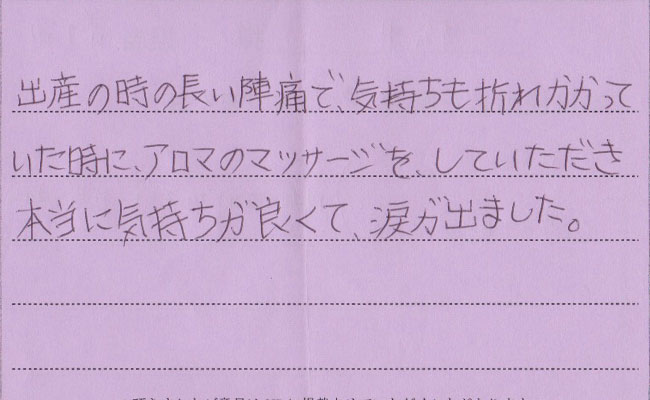 出産の時の長い陣痛で、気持ちも折れかかって
いた時に、アロマのマッサージを、していただき
本当に気持ちが良くて、涙が出ました。